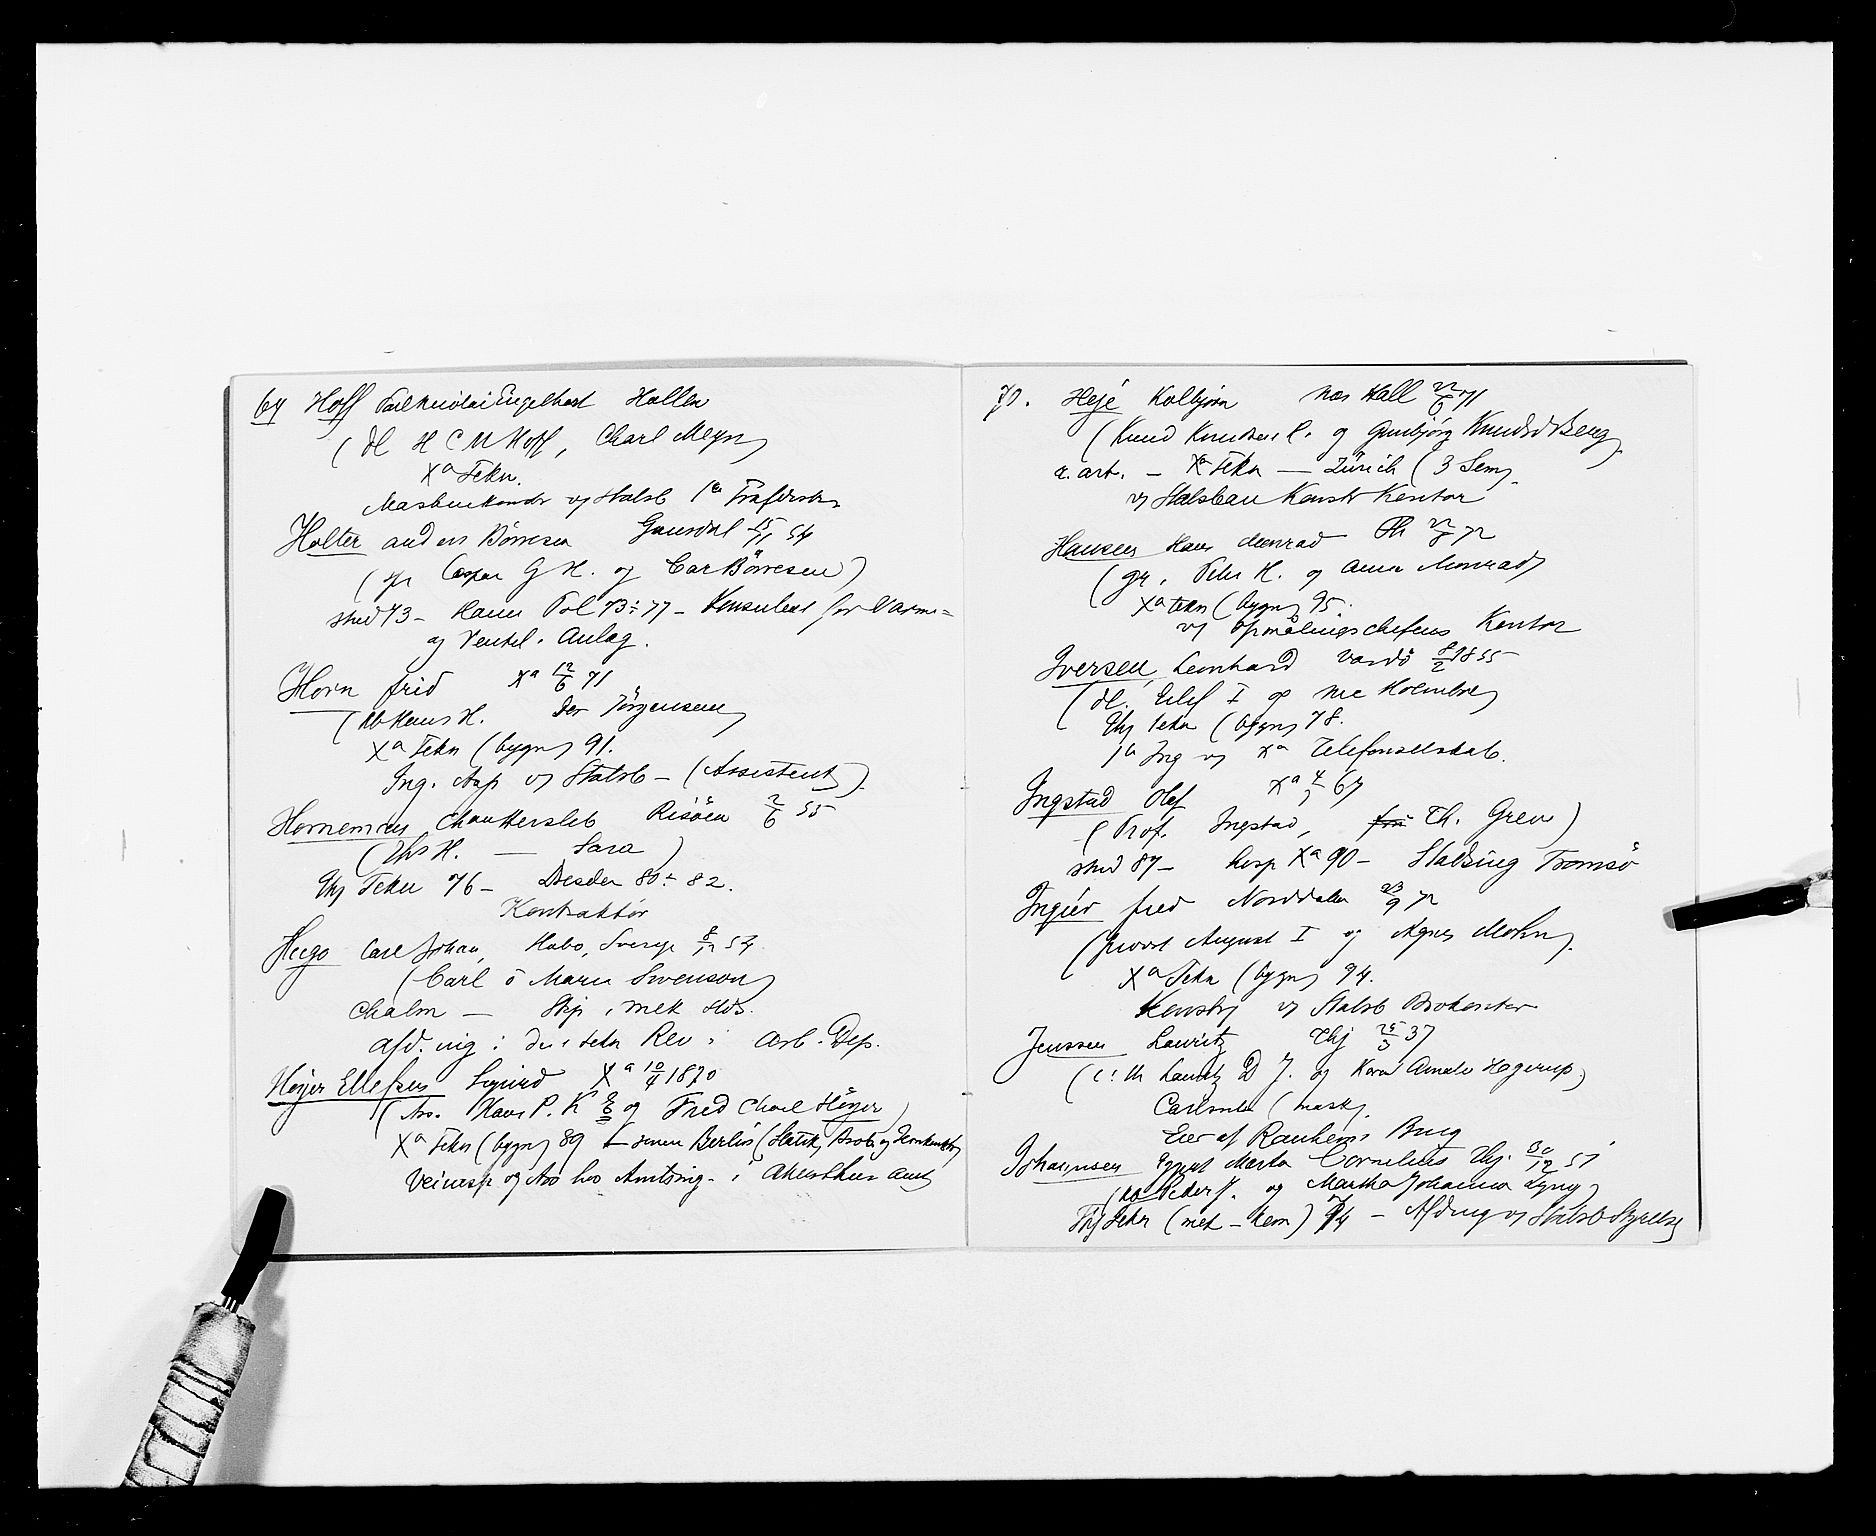 69 Hoff Engelhart Hollen
(Hl H C M Hoff, Charl Meyn)
Xa Tekn.
Maskinkondr v/ Statsb 1a Trafdistr.
Holter Anders Börresen Gausdal 15/11 54
(gr Caspar G H. og Car Börresen)
stud 73 – Hann Pol 73÷77 – Konsulent for Varme=
og Ventil. Anlæg.
Horn Fred Xa 12/6 71
(Hans H. Jörgensen)
Xa Tekn (bygn) 91.
Ing. Asp v/ Statsb – (Assistent)
Hornemann Chr Hersleb Risöen 2/6 55
(Ths H. — Sara )
Thj Tekn 76 – Dresden 80÷82.
Kontraktör
Hugo Carl Johan, Habo, Sverge 8/12 54.
(Carl o Maria Swenson)
Chalm — Stip i mek
Afd. ing i den tekn Rev i Arb. Dep.
Höyer Ellefsen Sigurd Xa 10/4 1870
(Ass. Hans P. K E og Fred Charl Höyer)
Xa Tekn (bygn) 89 Berlin (Statik,
Veivesp og Ass hos Amtsing. i Akershus Amt
70. Heje Kolbjörn Næs Hall 22/6 71
(Knud Knudsen og Gunbjörg Knudsd Berg)
a. art. – Xa Tekn — Zürich (3 Sem)
v/ Statsban Konstr Kontor
Hansen Hans Monrad Th 22/8 72
(gr. Peter H. og Anna Monrad)
Xa Tekn (bygn) 95.
v/ Opmålingschefens Kontor
Iversen, Leonhard Vardö 8/2 1855
(Hl. Eilef I og Holmboe)
Thj Tekn (bygn) 78.
1a Ing v/ Xa Telefonselskab.
Ingstad Olaf Xa 4/5 67
(Prof. Ingstad, Th. Greve)
stud 87 – hosp Xa 90 – Stadsing Tromsö
Ingier Fred Norddalen 23/9 72
(provst August I og Agnes Mohn)
Xa Tekn (bygn) 94.
Konstr v/ Statsb Brokontor
Jenssen Lauritz Thj 25/3 37
(Lauritz D J. og Karen Amalie Hagerup)
Carlsruhe (mask)
Eier af Ranheims Brug
Johannsen Martin Cornelius Thj. 30/12 51
(Peder J. og Martha Johanna Lyng)
Thj Tekn (mek – kem) 74 – Afding v/ Statsb Styrelse